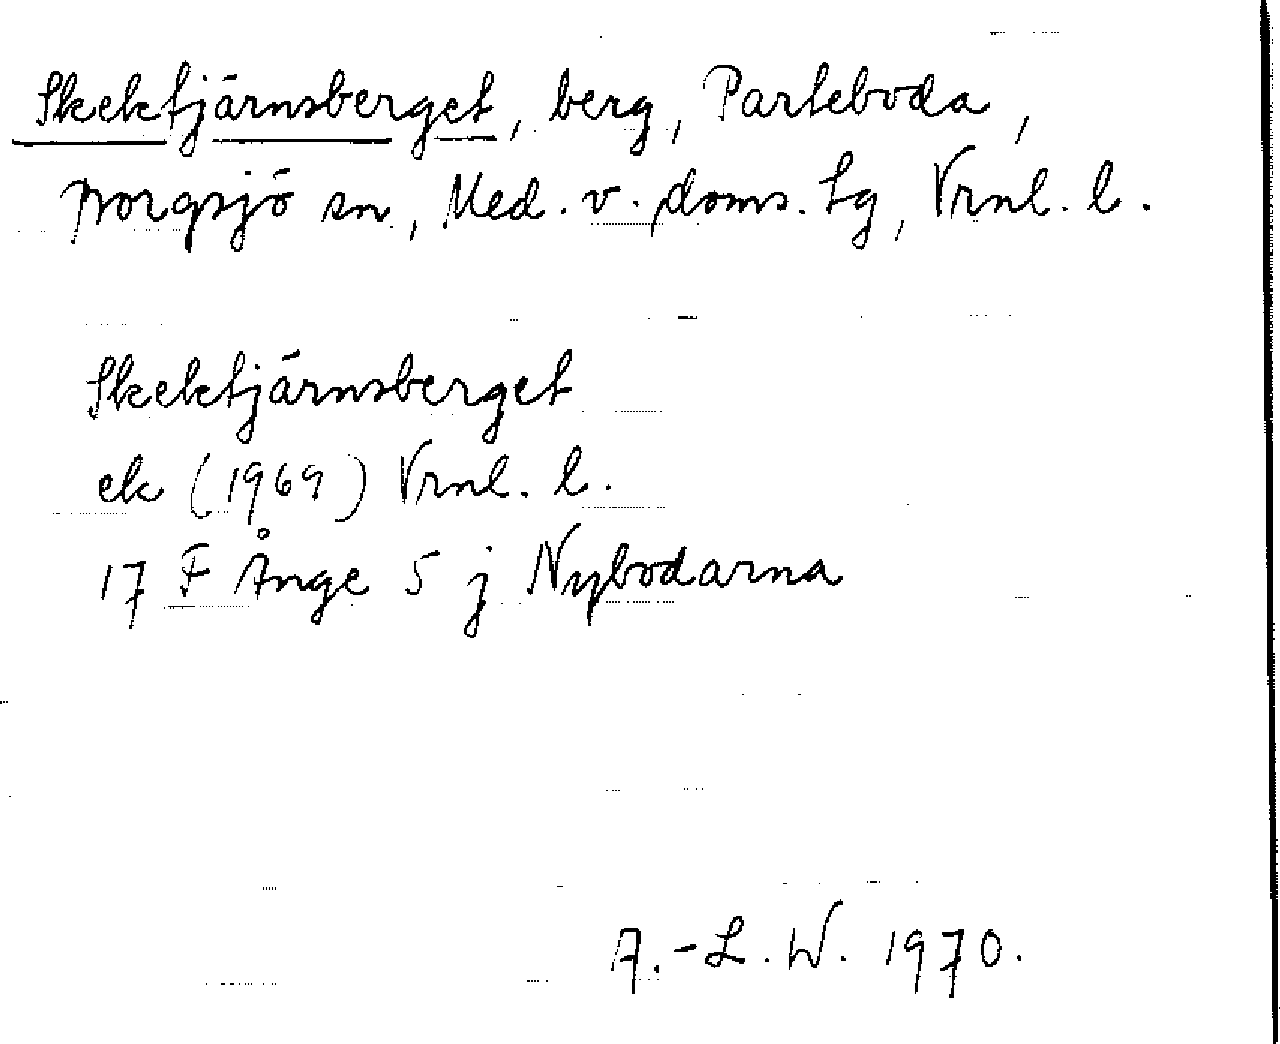 Skektjärnsberget, berg, Parteboda,
Borgsjö sn, Med. v. doms. tg, Vrnl. l.
Skektjärnsberget
ek (1969) Vrnl. l.
17 F Ånge 5 j Nybodarna
A.-L. W. 1970.